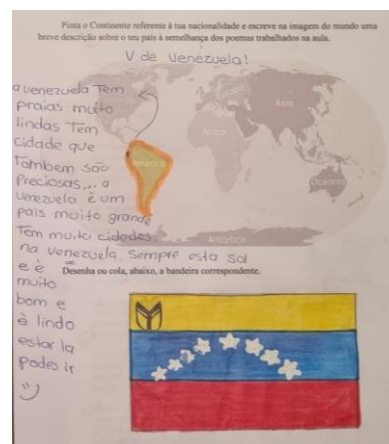 Pinta o Continente referente à tua nacionalidade e escreve na imagem do mundo uma
breve descrição sobre o teu país à semelhança dos poemas trabalhados na aula.
V de Venezuela!
a venezuela Tem
praias muito
lindas Tem
cidade que
Tambem são
Preciosas... a
venezuela é um
pais muito grande
Tem muita cidades
na venezuela. Sempre esta sol
e é
muito
bom e
è lindo
estar la
podes ir
Europa
Ásia
África
América
Oceania
Antártica
Desenha ou cola, abaixo, a bandeira correspondente.